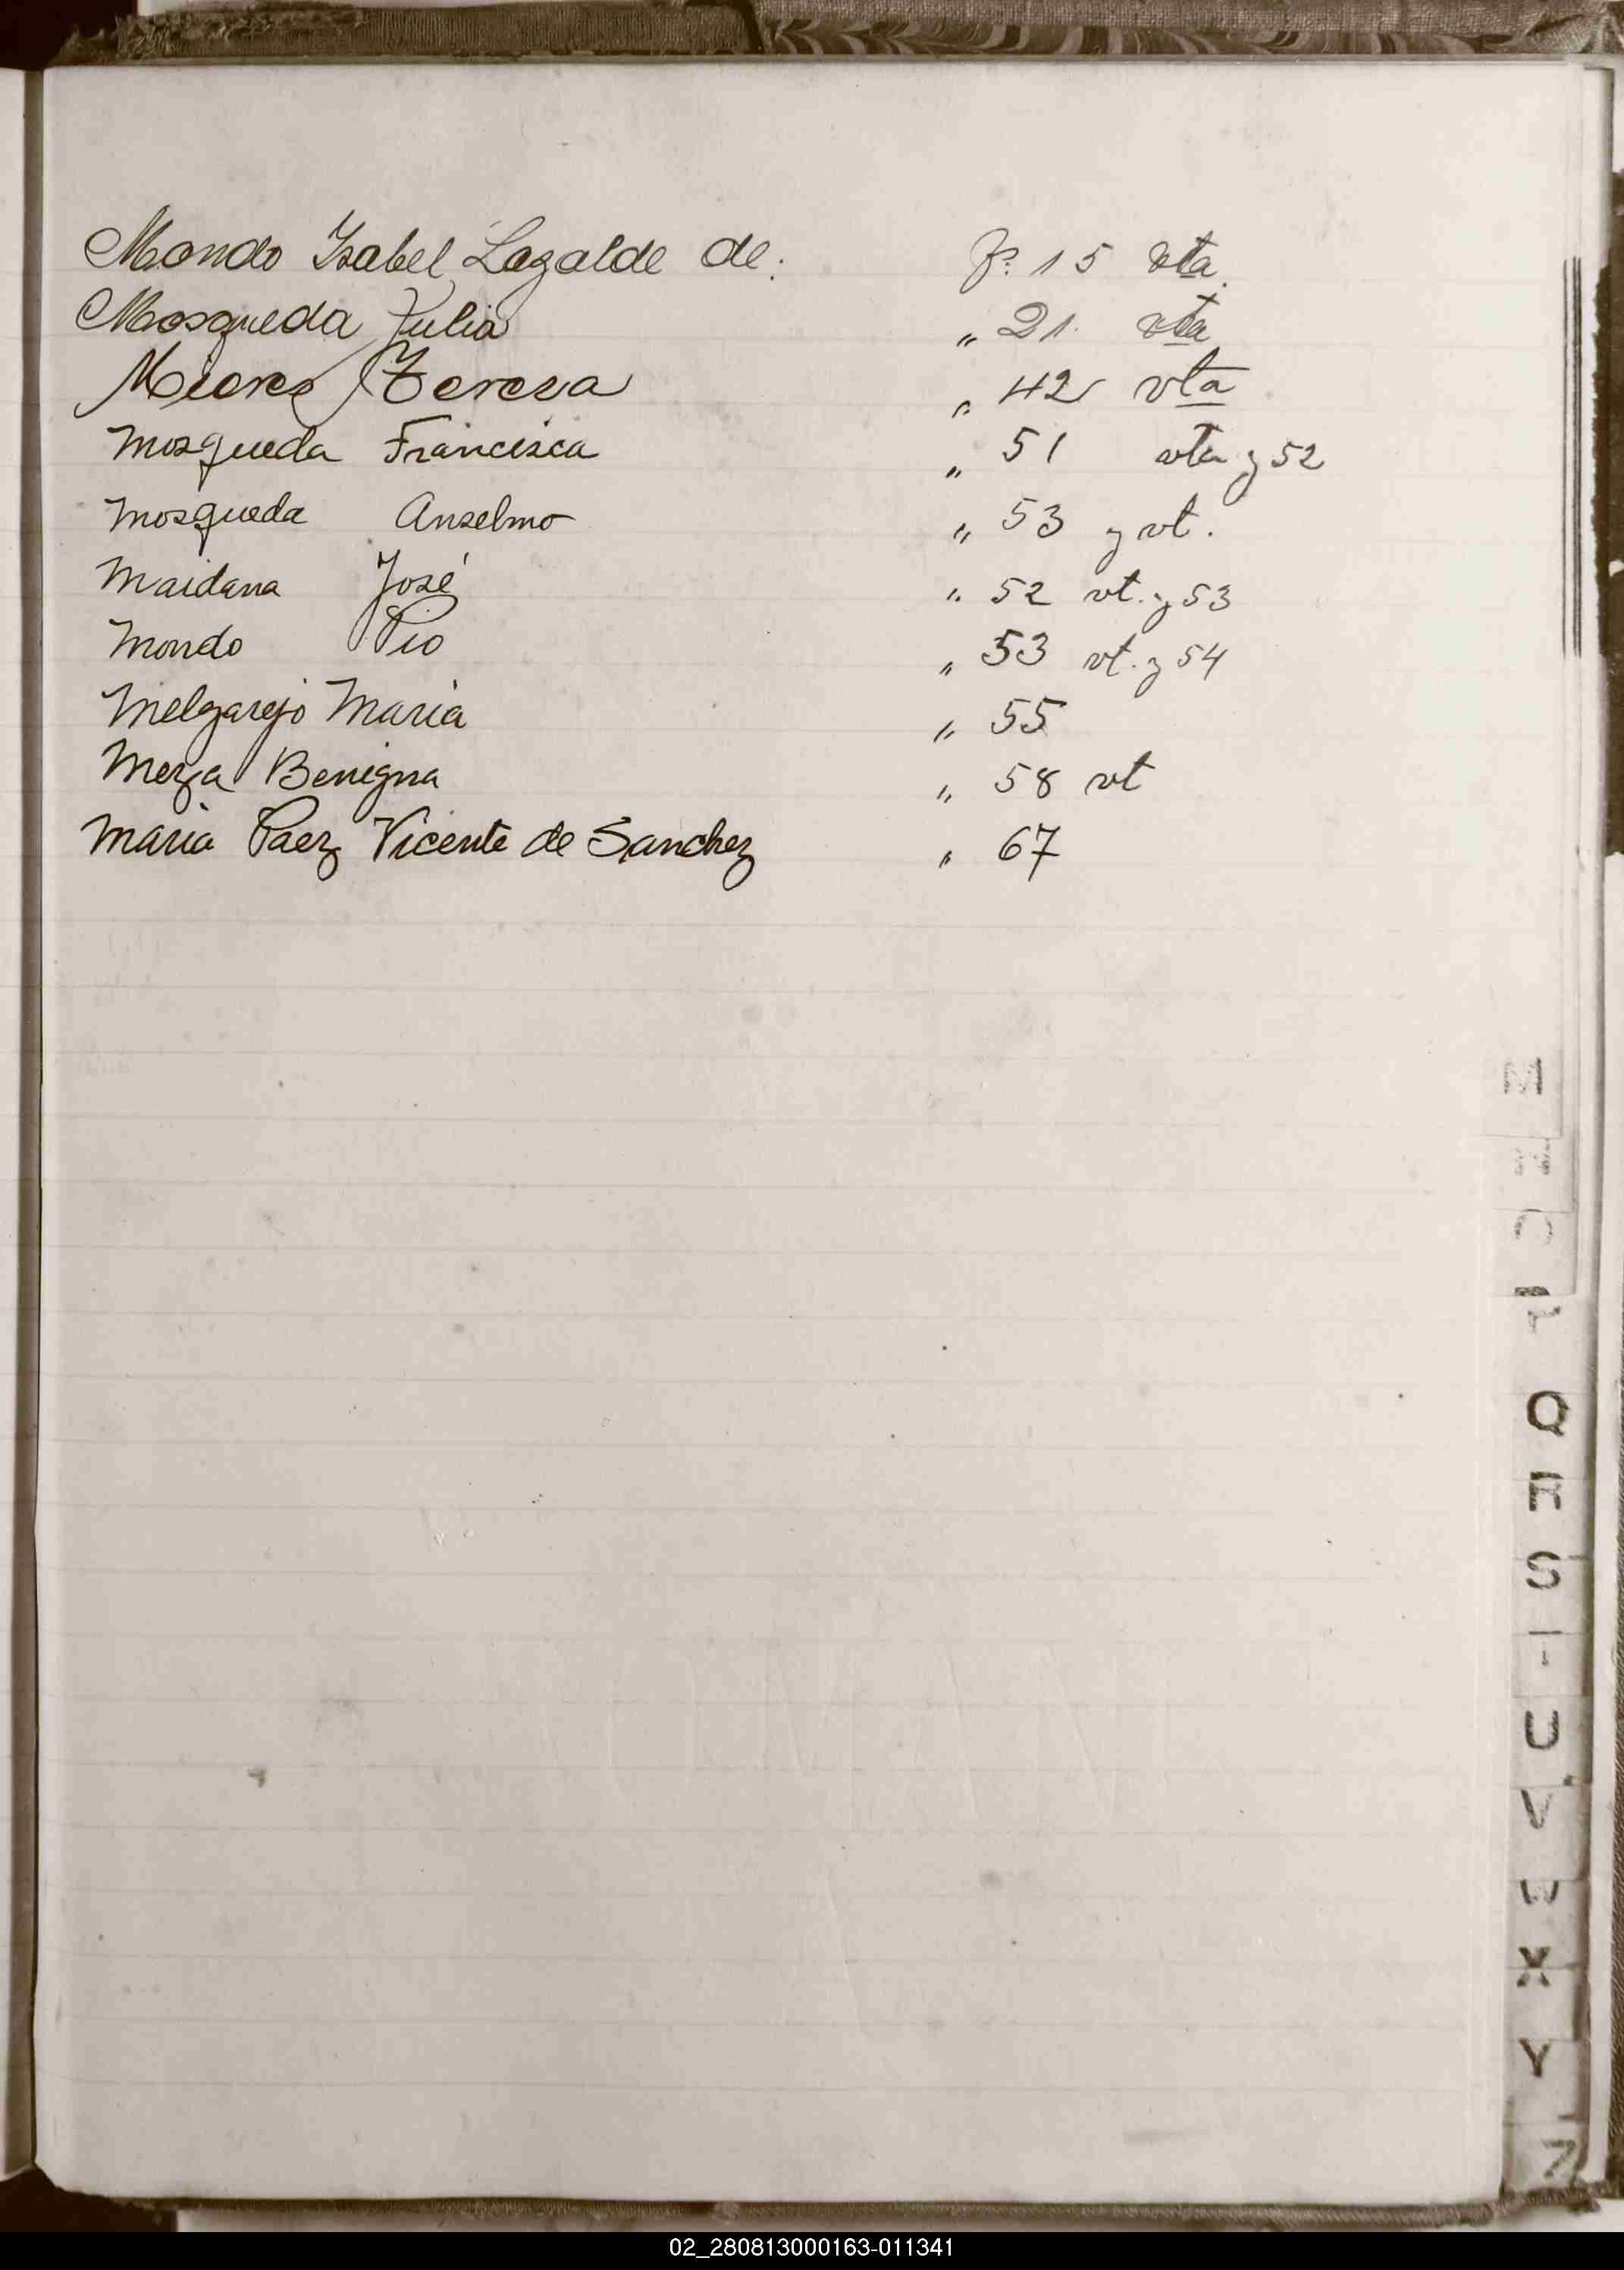 Mondo Isabel Lazalde de. Fº. 15 vta.
Mosqueda Julia „ 21 vta
Mieres Teresa „ 42 vta
Mosqueda Francisca „ 51 vta y 52
Mosqueda Anselmo „ 53 y vt.
Maidana José „ 52 vt. y 53
Mondo Pio „ 53 vt. y 54
Melgarejo María „ 55
Meza Benigna „ 58 vt
Maria Paez Vicente de Sanchez „ 67
Q
R
S
U
V
W
X
Y
Z
02_280813000163-011341